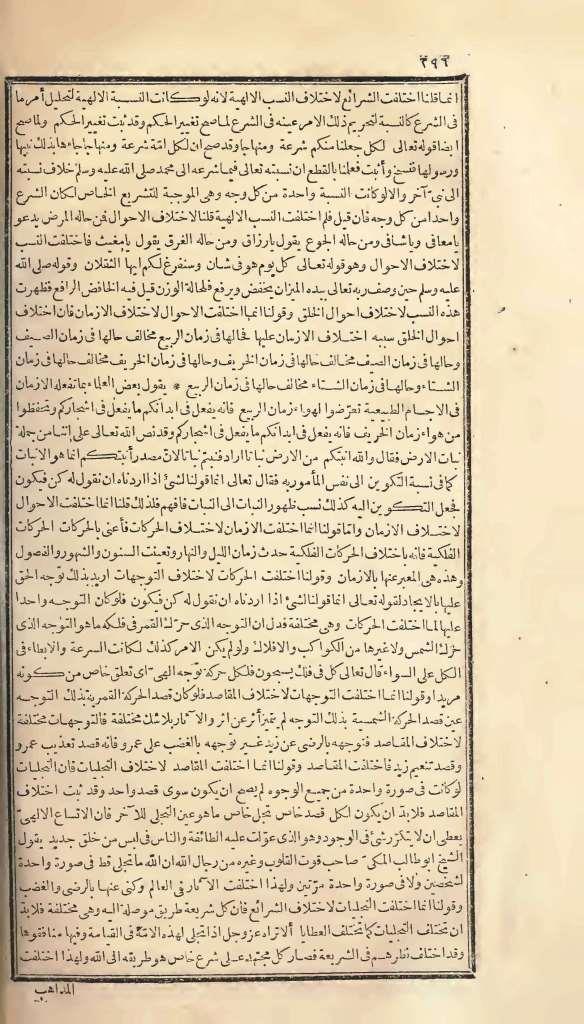 ٢٩٦
انما قلنا اختلفت الشرائع لاختلاف النسب الالهية لانه لو كانت النسبة الالهية لتحليل أمر ما
فى الشرع كالنسبة لتحريم ذلك الامر عينه فى الشرع لما صح تغيير الحكم وقد ثبت تغيير الحكم ولما صح
ايضا قوله تعالى لكل جعلنا منكم شرعة ومنهاجا وقد صح ان لكل امّة شرعة ومنهاجا جاءها بذلك نبيها
ورسولها فنسخ وأثبت فعلمنا بالقطع ان نسبته تعالى فيما شرعه الى محمد صلى الله عليه وسلم خلاف نسبته
الى نبىّ آخر والا لو كانت النسبة واحدة من كل وجه وهى الموجبة للتشريع الخاص لكان الشرع
واحدا من كل وجه فان قيل فلم اختلفت النسب الالهية قلنا لاختلاف الاحوال فمن حاله المرض يدعو
يا معافى ويا شافى ومن حاله الجوع يقول يا رزاق ومن حاله الغرق يقول يا مغيث فاختلفت النسب
لاختلاف الاحوال وهو قوله تعالى كل يوم هو فى شان وسنفرغ لكم ايها الثقلان وقوله صلى الله
عليه وسلم حين وصف ربه تعالى بيده الميزان يخفض ويرفع فلحالة الوزن قيل فيه الخافض الرافع فظهرت
هذه النسب لاختلاف احوال الخلق وقولنا انما اختلفت الاحوال لاختلاف الازمان فان اختلاف
احوال الخلق سببه اختلاف الازمان عليها فحالها فى زمان الربيع مخالف حالها فى زمان الصيف
وحالها فى زمان الصيف مخالف حالها فى زمان الخريف وحالها فى زمان الخريف مخالف حالها فى زمان
الشتاء وحالها فى زمان الشتاء مخالف حالها فى زمان الربيع * يقول بعض العلماء بما تفعله الازمان
فى الاجسام الطبيعية تعرّضوا لهواء زمان الربيع فانه يفعل فى ابدانكم ما يفعل فى اشجاركم وتحفظوا
من هواء زمان الخريف فانه يفعل فى ابدانكم ما يفعل فى اشجاركم وقد نص الله تعالى على اننا من جملة
نبات الارض فقال والله انبتكم من الارض نباتا اراد فنبتم نباتا لانّ مصدر أنبتكم انما هو الانبات
كما فى نسبة التكوين الى نفس المأمور به فقال تعالى انما قولنا لشئ اذا اردناه ان نقول له كن فيكون
فجعل التكوين اليه كذلك نسب ظهور النبات الى النبات فافهم فلذلك قلنا انما اختلفت الاحوال
لاختلاف الازمان واما قولنا انما اختلفت الازمان لاختلاف الحركات فأعنى بالحركات الحركات
الفلكية فانه باختلاف الحركات الفلكية حدث زمان الليل والنهار وتعينت السنون والشهور والفصول
وهذه هى المعبر عنها بالازمان وقولنا اختلفت الحركات لاختلاف التوجهات اريد بذلك توجه الحق
عليها بالايجاد لقوله تعالى انما قولنا لشئ اذا اردناه ان نقول له كن فيكون فلو كان التوجه واحدا
عليها لما اختلفت الحركات وهى مختلفة فدل ان التوجه الذى حرّك القمر فى فلكه ما هو التوجه الذى
حرّك الشمس ولا غيرها من الكواكب والافلاك ولو لم يكن الامر كذلك لكانت السرعة والابطاء فى
الكل على السواء قال تعالى كل فى فلك يسبحون فلكل حركة توجه الهىّ اى تعلق خاص من كونه
مريدا وقولنا انما اختلفت التوجهات لاختلاف المقاصد فلو كان قصد الحركة القمرية بذلك التوجه
عين قصد الحركة الشمسية بذلك التوجه لم يتميز أثر عن اثر والاثار بلا شك مختلفة فالتوجهات مختلفة
لاختلاف المقاصد فتوجهه بالرضى عن زيد غير توجهه بالغضب على عمرو فانه قصد تعذيب عمرو
وقصد تنعيم زيد فاختلفت المقاصد وقولنا انما اختلفت المقاصد لاختلاف التجليات فان التجليات
لو كانت فى صورة واحدة من جميع الوجوه لم يصح ان يكون سوى قصد واحد وقد ثبت اختلاف
المقاصد فلا بدّ ان يكون لكل قصد خاص تجل خاص ما هو عين التجلى للآخر فان الاتساع الالهىّ
يعطى ان لا يتكرّر شئ فى الوجود وهو الذى عوّلت عليه الطائفة والناس فى لبس من خلق جديد يقول
الشيخ ابو طالب المكىّ صاحب قوت القلوب وغيره من رجال الله ان الله ما تجلى قط فى صورة واحدة
لشخصين ولا فى صورة واحدة مرّتين ولهذا اختلفت الآثار فى العالم وكنى عنها بالرضى والغضب
وقولنا انما اختلفت التجليات لاختلاف الشرائع فان كل شريعة طريق موصلة اليه وهى مختلفة فلا بدّ
ان تختلف التجليات كما تختلف العطايا ألا تراه عز وجل اذا تجلى لهذه الامّة فى القيامة وفيها منافقوها
وقد اختلف نظرهم فى الشريعة فصار كل مجتهد على شرع خاص هو طريقه الى الله ولهذا اختلفت
المذاهب